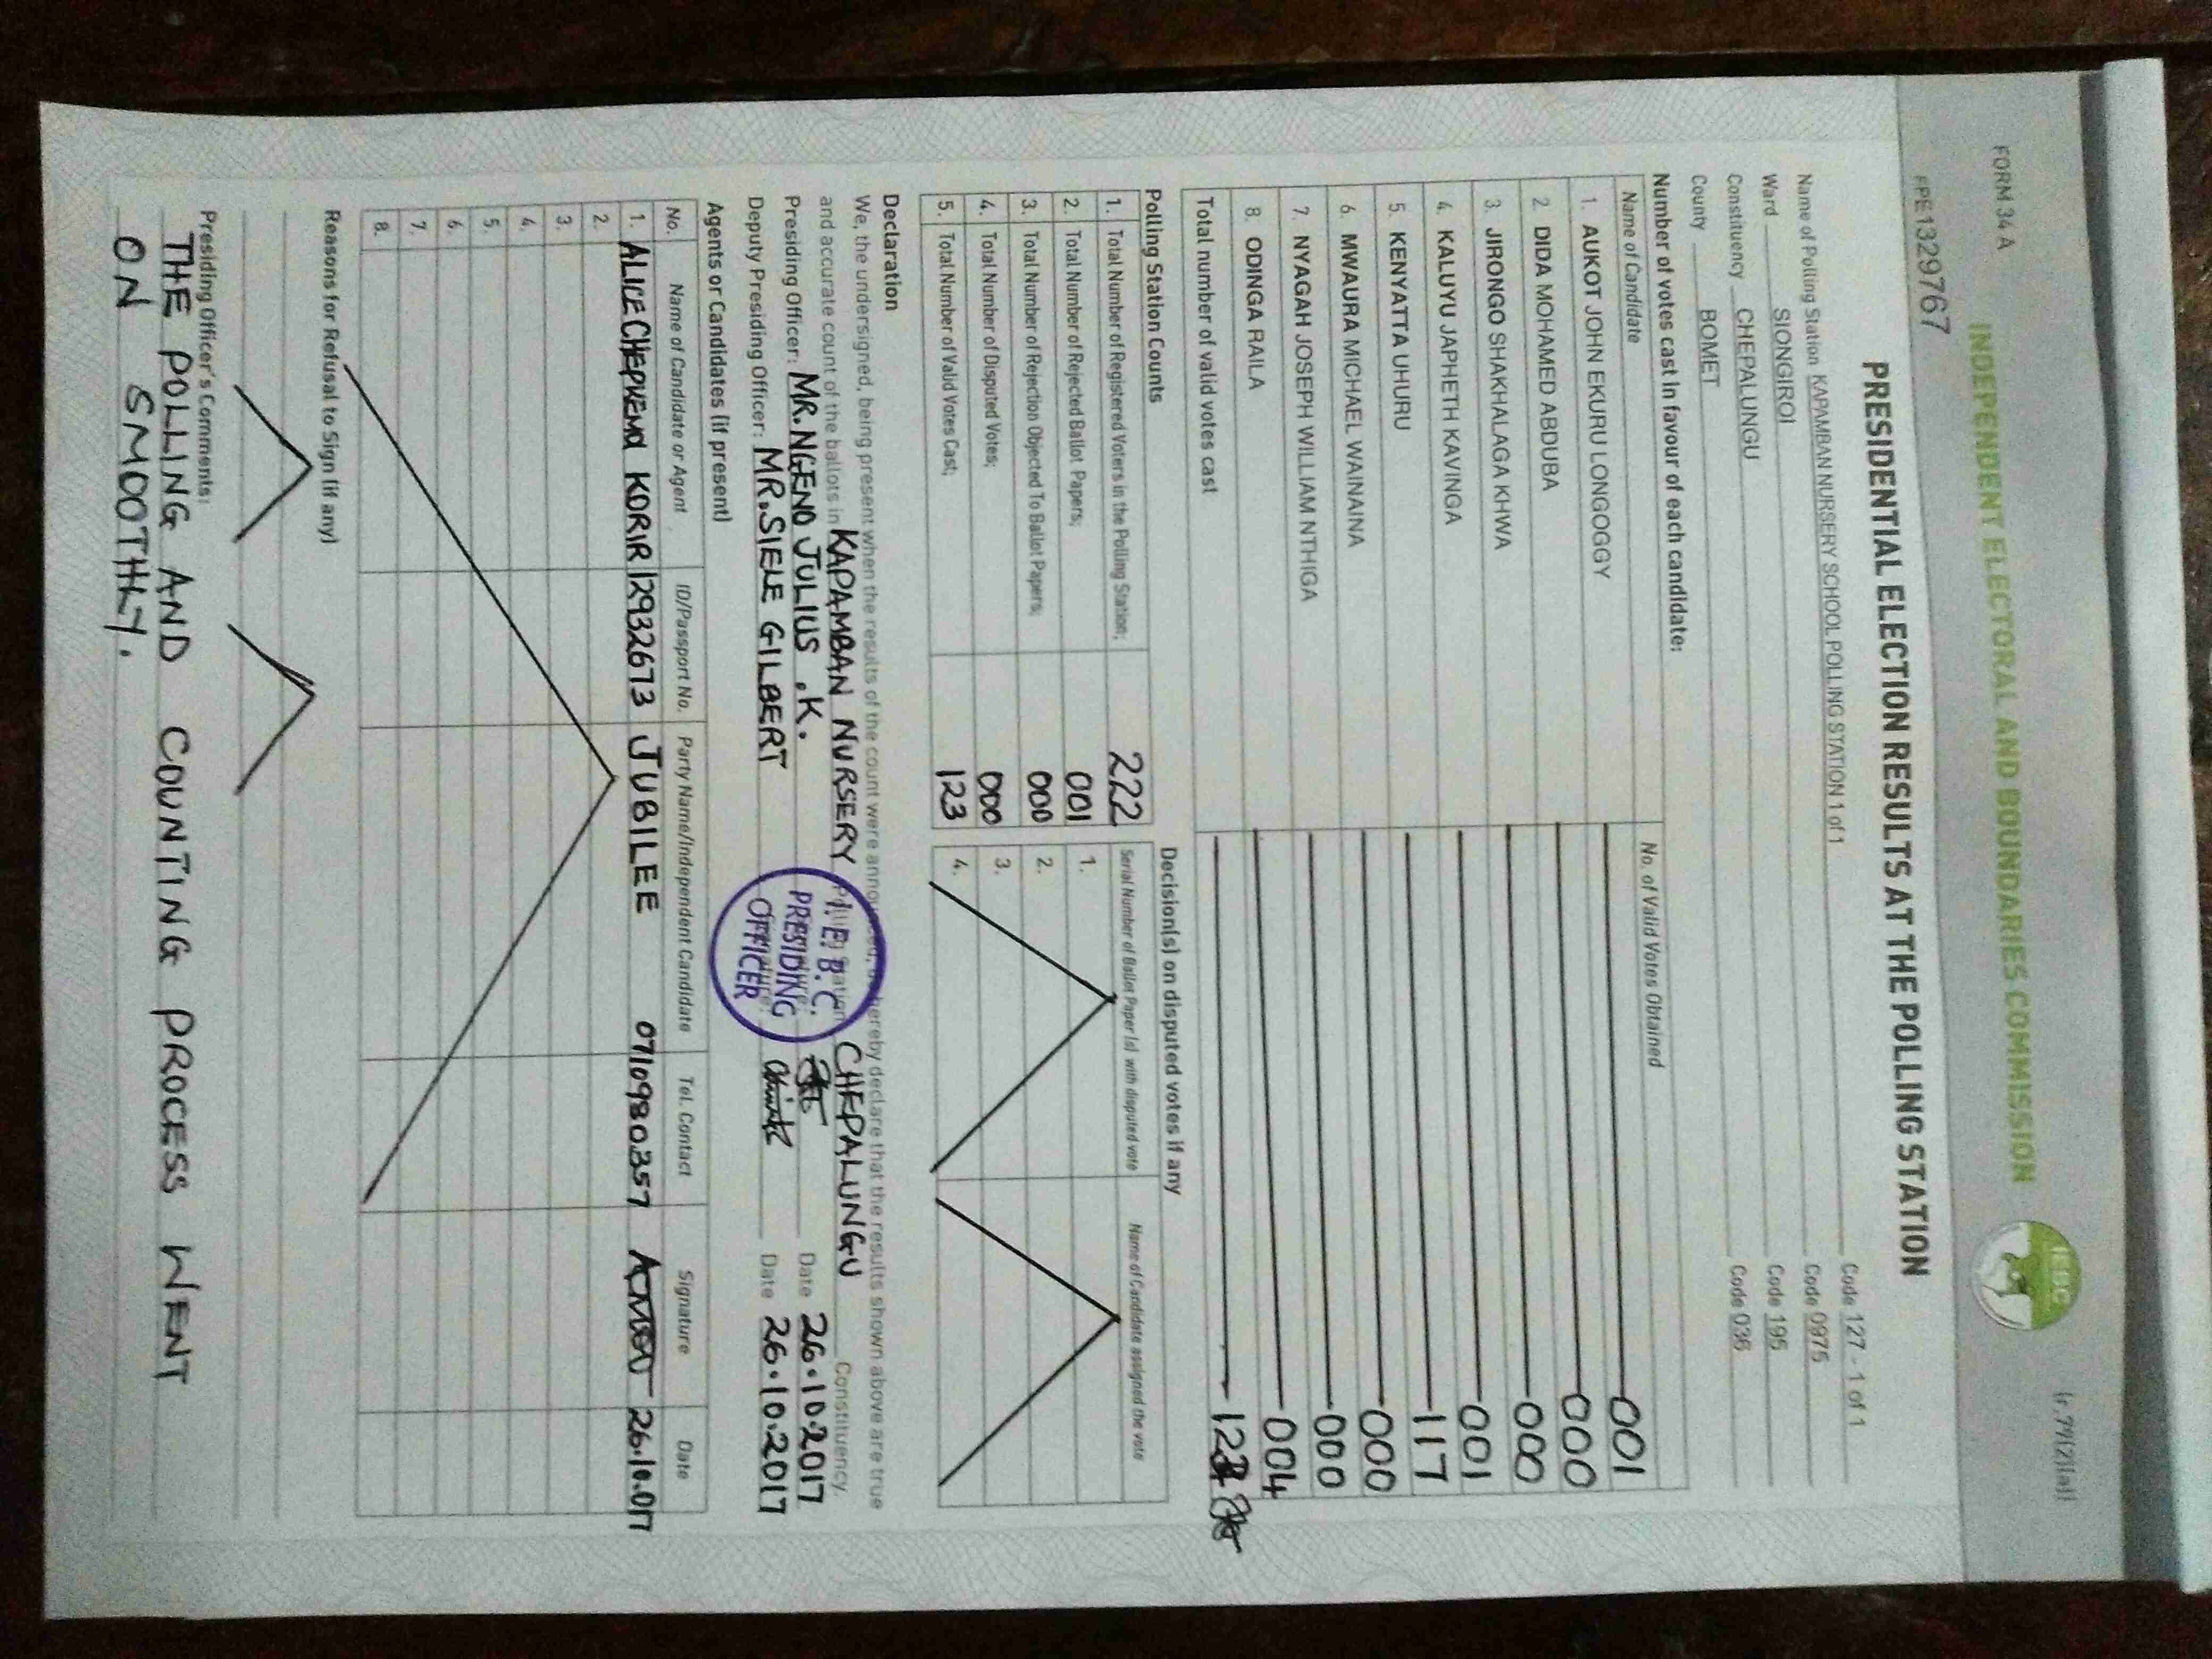 FORM 34 A
(r.79(2)(a))
INDEPENDENT ELECTORAL AND BOUNDARIES COMMISSION
IEBC
PPE1329767
PRESIDENTIAL ELECTION RESULTS AT THE POLLING STATION
Name of Polling Station KAPAMBAN NURSERY SCHOOL POLLING STATION 1 of 1 Code 127 - 1 of 1
Ward SIONGIROI Code 0975
Constituency CHEPALUNGU Code 195
County BOMET Code 036
Number of votes cast in favour of each candidate:
Name of Candidate No. of Valid Votes Obtained
1. AUKOT JOHN EKURU LONGOGGY 001
2. DIDA MOHAMED ABDUBA 000
3. JIRONGO SHAKHALAGA KHWA 000
4. KALUYU JAPHETH KAVINGA 001
5. KENYATTA UHURU 117
6. MWAURA MICHAEL WAINAINA 000
7. NYAGAH JOSEPH WILLIAM NTHIGA 000
8. ODINGA RAILA 004
Total number of valid votes cast
Polling Station Counts
1. Total Number of Registered Voters in the Polling Station; 222
2. Total Number of Rejected Ballot Papers; 001
3. Total Number of Rejection Objected To Ballot Papers; 000
4. Total Number of Disputed Votes; 000
5. Total Number of Valid Votes Cast; 123
Decision(s) on disputed votes if any
Serial Number of Ballot Paper (s) with disputed vote Name of Candidate assigned the vote
1.
2.
3.
4.
Declaration
We, the undersigned, being present when the results of the count were announced, do hereby declare that the results shown above are true
and accurate count of the ballots in KAPAMBAN NURSERY Polling Station CHEPALUNGU Constituency.
Presiding Officer: MR. NGENO JULIUS .K. Signature: Date 26.10.2017
Deputy Presiding Officer: MR. SIELE GILBERT Signature: Date 26.10.2017
I.E.B.C.
PRESIDING
OFFICER
Agents or Candidates (if present)
No. Name of Candidate or Agent ID/Passport No. Party Name/Independent Candidate Tel. Contact Signature Date
1. ALICE CHEPKEMOI KORIR 12932673 JUBILEE 0710980357 26.10.017
2.
3.
4.
5.
6.
7.
8.
Reasons for Refusal to Sign (if any)
Presiding Officer's Comments:
THE POLLING AND COUNTING PROCESS WENT
ON SMOOTHLY.